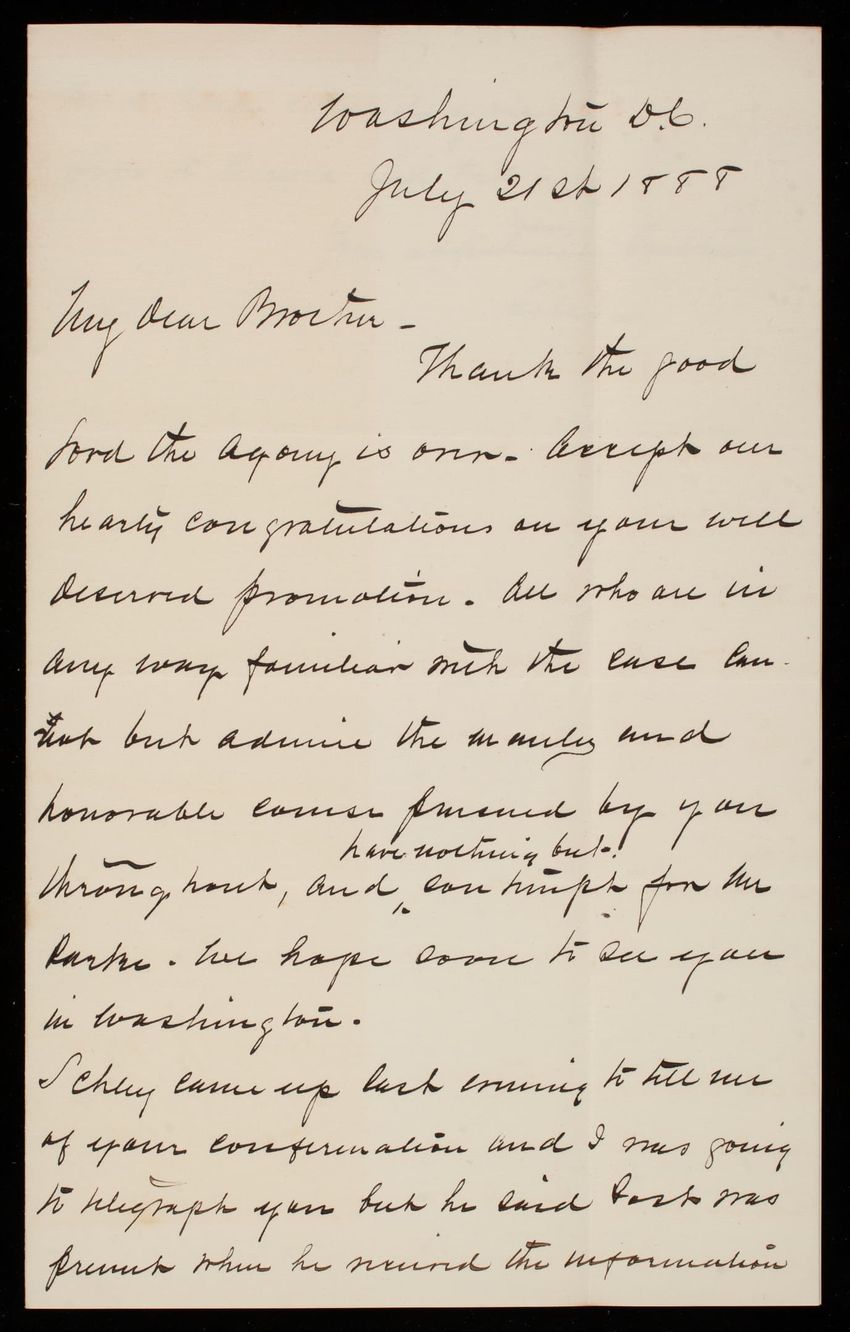 Washington D.C.
July 21st 1888
My Dear Brother -
Thank the good
Lord the agony is over. Accept our
hearty congratulations on your well
deserved promotion. All who are in
any way familiar with the case can
not but admire the manly and
honorable course pursued by you
have nothing but
throughout, and contempt for Mr
We hope soon to see you
in Washington.
Schley came up last evening to tell me
of your confirmation and I was going
to telegraph you but he said Post was
present when he received the information